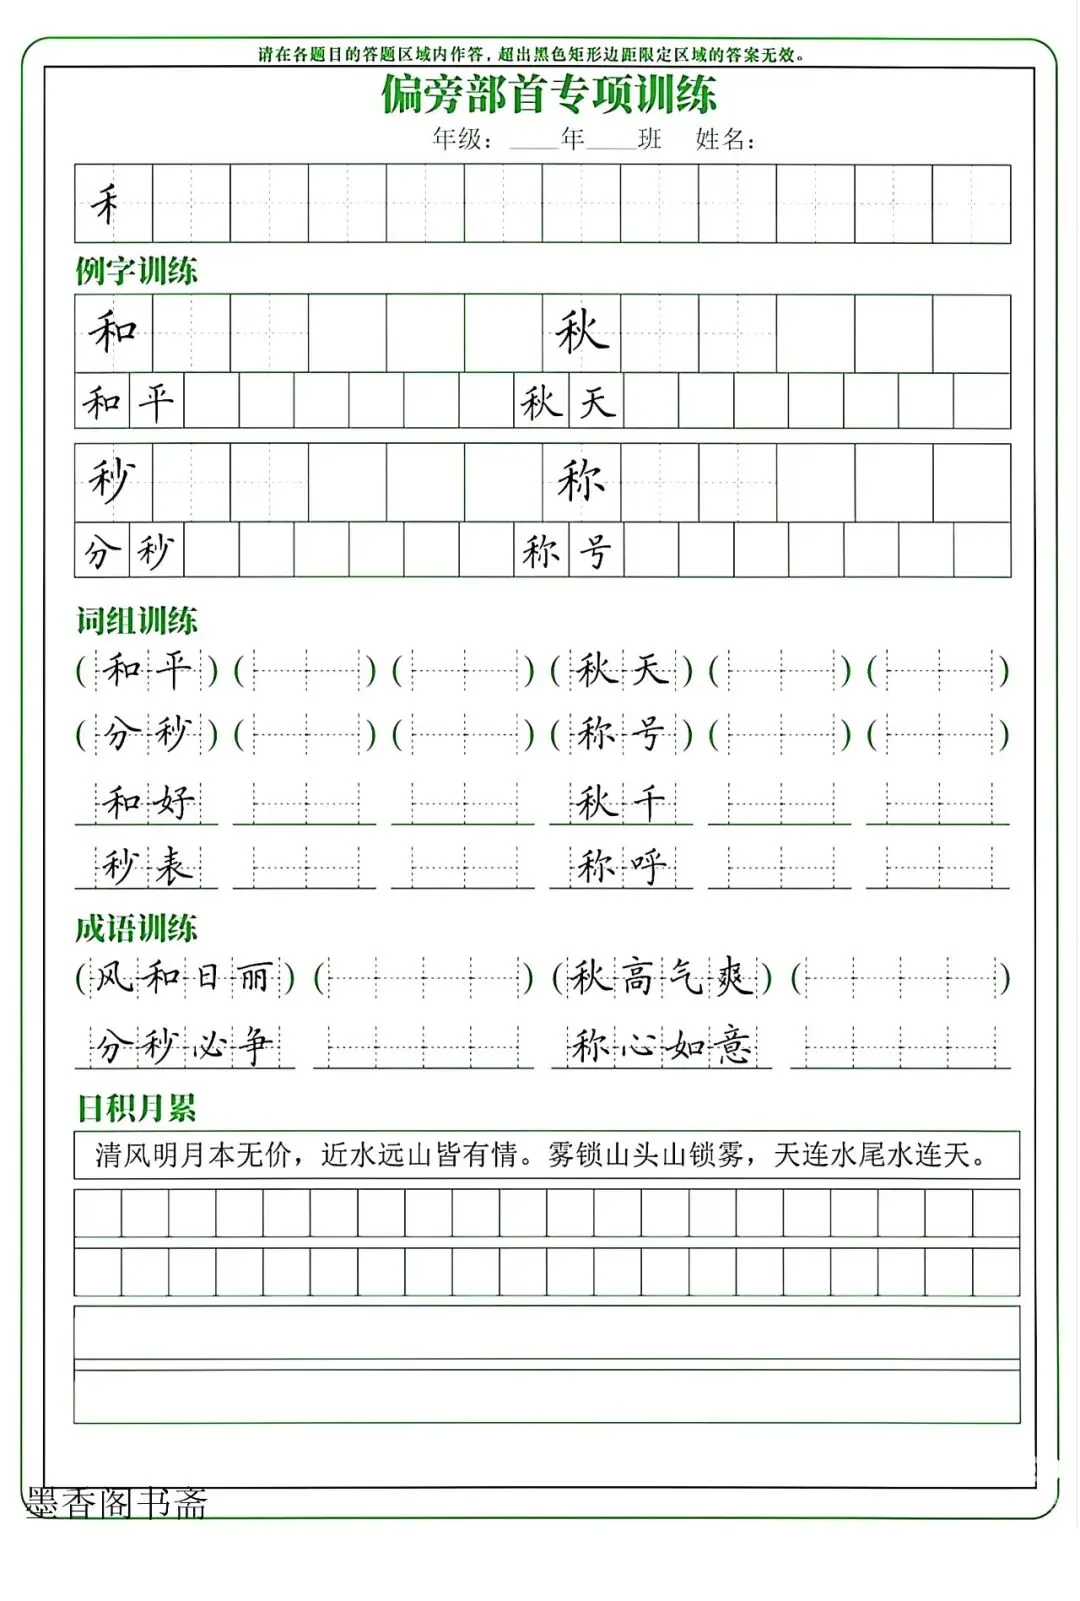 请在各题目的答题区域内作答，超出黑色矩形边距限定区域的答案无效。
偏旁部首专项训练
年级：____年____班 姓名：
禾
例字训练
和 秋
和平 秋天
秒 称
分秒 称号
词组训练
(和平)( )( )(秋天)( )( )
(分秒)( )( )(称号)( )( )
和好 秋千
秒表 称呼
成语训练
(风和日丽)( )(秋高气爽)( )
分秒必争 称心如意
日积月累
清风明月本无价，近水远山皆有情。雾锁山头山锁雾，天连水尾水连天。
墨香阁书斋